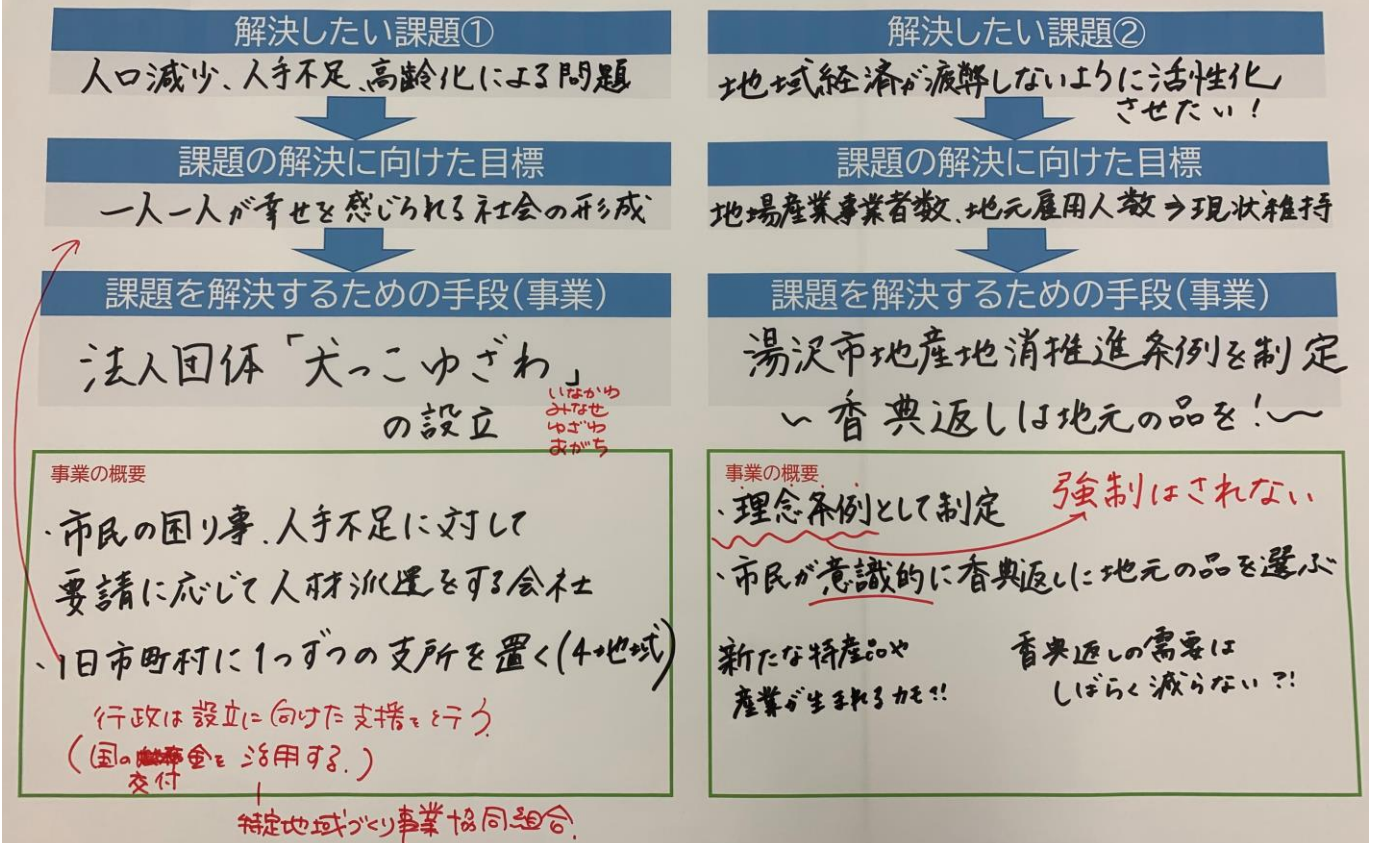 解決したい課題①
人口減少、人手不足、高齢化による問題
課題の解決に向けた目標
一人一人が幸せを感じられる社会の形成
課題を解決するための手段(事業)
法人団体「犬っこゆざわ」
の設立
いなかわ
みなせ
ゆざわ
おがち
事業の概要
・市民の困り事、人手不足に対して
要請に応じて人材派遣をする会社
・旧市町村に1つずつの支所を置く(4地域)
行政は設立に向けた支援を行う
(国の 金を活用する。)
交付
特定地域づくり事業協同組合
解決したい課題②
地域経済が疲弊しないように活性化
させたい!
課題の解決に向けた目標
地場産業事業者数、地元雇用人数⇒現状維持
課題を解決するための手段(事業)
湯沢市地産地消推進条例を制定
~香典返しは地元の品を!~
事業の概要
・理念条例として制定
強制はされない
・市民が意識的に香典返しに地元の品を選ぶ
新たな特産品や
産業が生まれるカモ?!
香典返しの需要は
しばらく減らない?!